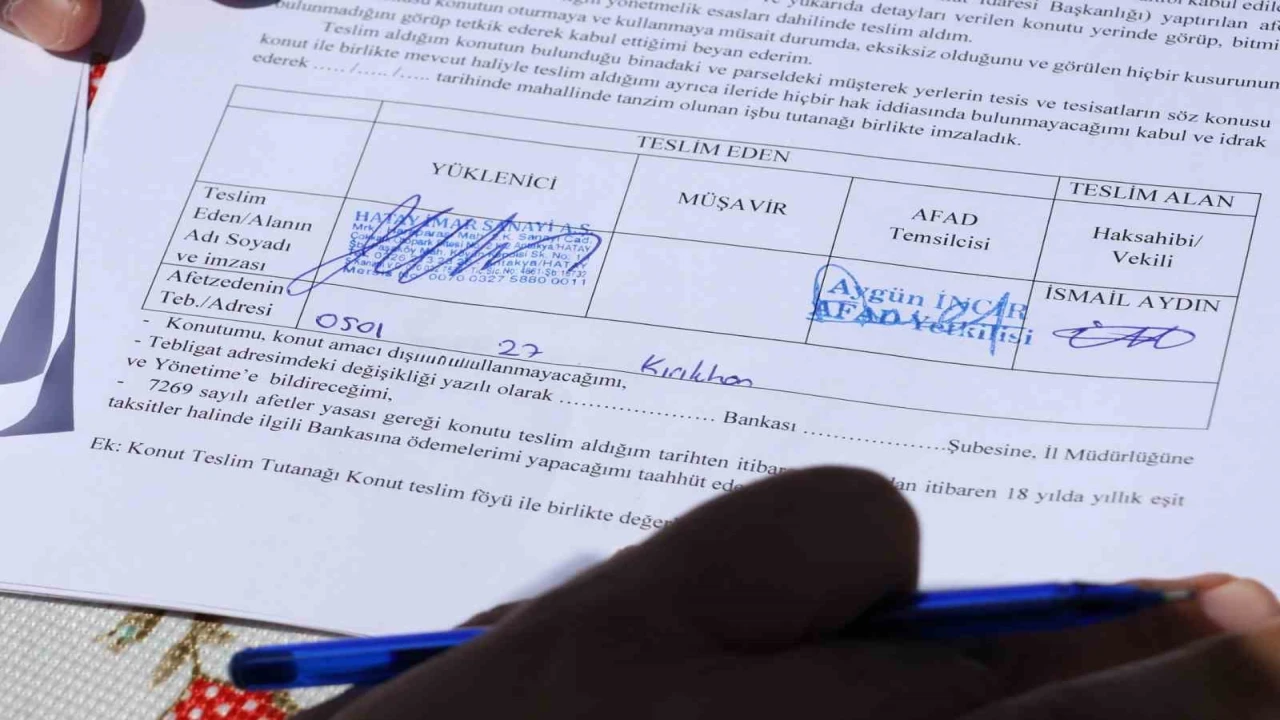 İdaresi Başkanlığı) yaptırılan afe
konutun oturmaya ve kullanmaya müsait durumda, eksiksiz olduğunu ve görülen hiçbir kusurunun
yönetmelik esasları dahilinde teslim aldım.
yukarıda detayları verilen konutu yerinde görüp, bitmi
bulunmadığını görüp tetkik ederek kabul ettiğimi beyan ederim.
Teslim aldığım konutun bulunduğu binadaki ve parseldeki müşterek yerlerin tesis ve tesisatların söz konusu
konut ile birlikte mevcut haliyle teslim aldığımı ayrıca ileride hiçbir hak iddiasında bulunmayacağımı kabul ve idrak
ederek ...../...../..... tarihinde mahallinde tanzim olunan işbu tutanağı birlikte imzaladık.
TESLİM EDEN
TESLİM ALAN
YÜKLENİCİ
MÜŞAVİR
AFAD
Temsilcisi
Haksahibi/
Vekili
Teslim
Eden/Alanın
Adı Soyadı
ve imzası
HATAY İMAR SANAYİ A.Ş.
Aygün İNCİR
AFAD Yetkilisi
İSMAİL AYDIN
Afetzedenin
Teb./Adresi
0501 27 Kırıkhan
- Konutumu, konut amacı kullanmayacağımı,
- Tebligat adresimdeki değişikliği yazılı olarak ..................... Bankası .....................Şubesine, İl Müdürlüğüne
ve Yönetime'e bildireceğimi,
- 7269 sayılı afetler yasası gereği konutu teslim aldığım tarihten itibaren 18 yılda yıllık eşit
taksitler halinde ilgili Bankasına ödemelerimi yapacağımı taahhüt
Ek: Konut Teslim Tutanağı Konut teslim föyü ile birlikte